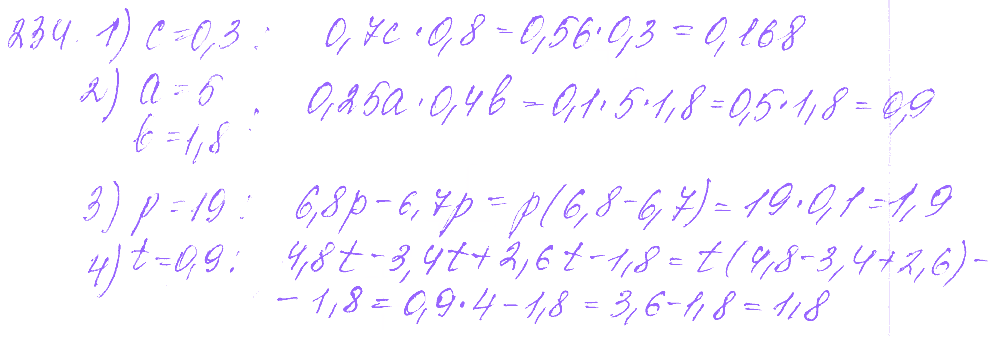 234. 1) c=0,3: 0,7c·0,8=0,56·0,3=0,168
2) a=5
b=1,8: 0,25a·0,4b=0,1·5·1,8=0,5·1,8=0,9
3) p=19: 6,8p-6,7p=p(6,8-6,7)=19·0,1=1,9
4) t=0,9: 4,8t-3,4t+2,6t-1,8=t(4,8-3,4+2,6)-
-1,8=0,9·4-1,8=3,6-1,8=1,8